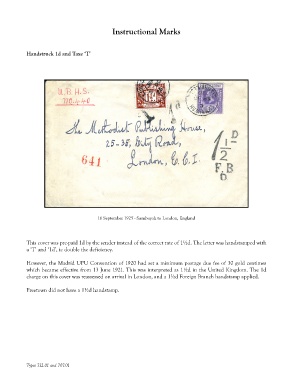 Instructional Marks
Handstruck 1d and Taxe 'T'
The Methodist Publishing House,
25-35, City Road,
London, E.C.1.
641
1½D
F.B
D
16 September 1925 - Sembeouh to London, England
This cover was prepaid 1d by the sender instead of the correct rate of 1½d. The letter was handstamped with
a 'T' and '1d', ie double the deficiency.
However, the Madrid UPU Convention of 1920 had set a minimum postage due fee of 30 gold centimes
which became effective from 13 June 1921. This was interpreted as 1½d in the United Kingdom. The 1d
charge on this cover was reassessed on arrival in London, and a 1½d Foreign Branch handstamp applied.
Freetown did not have a 1½d handstamp.